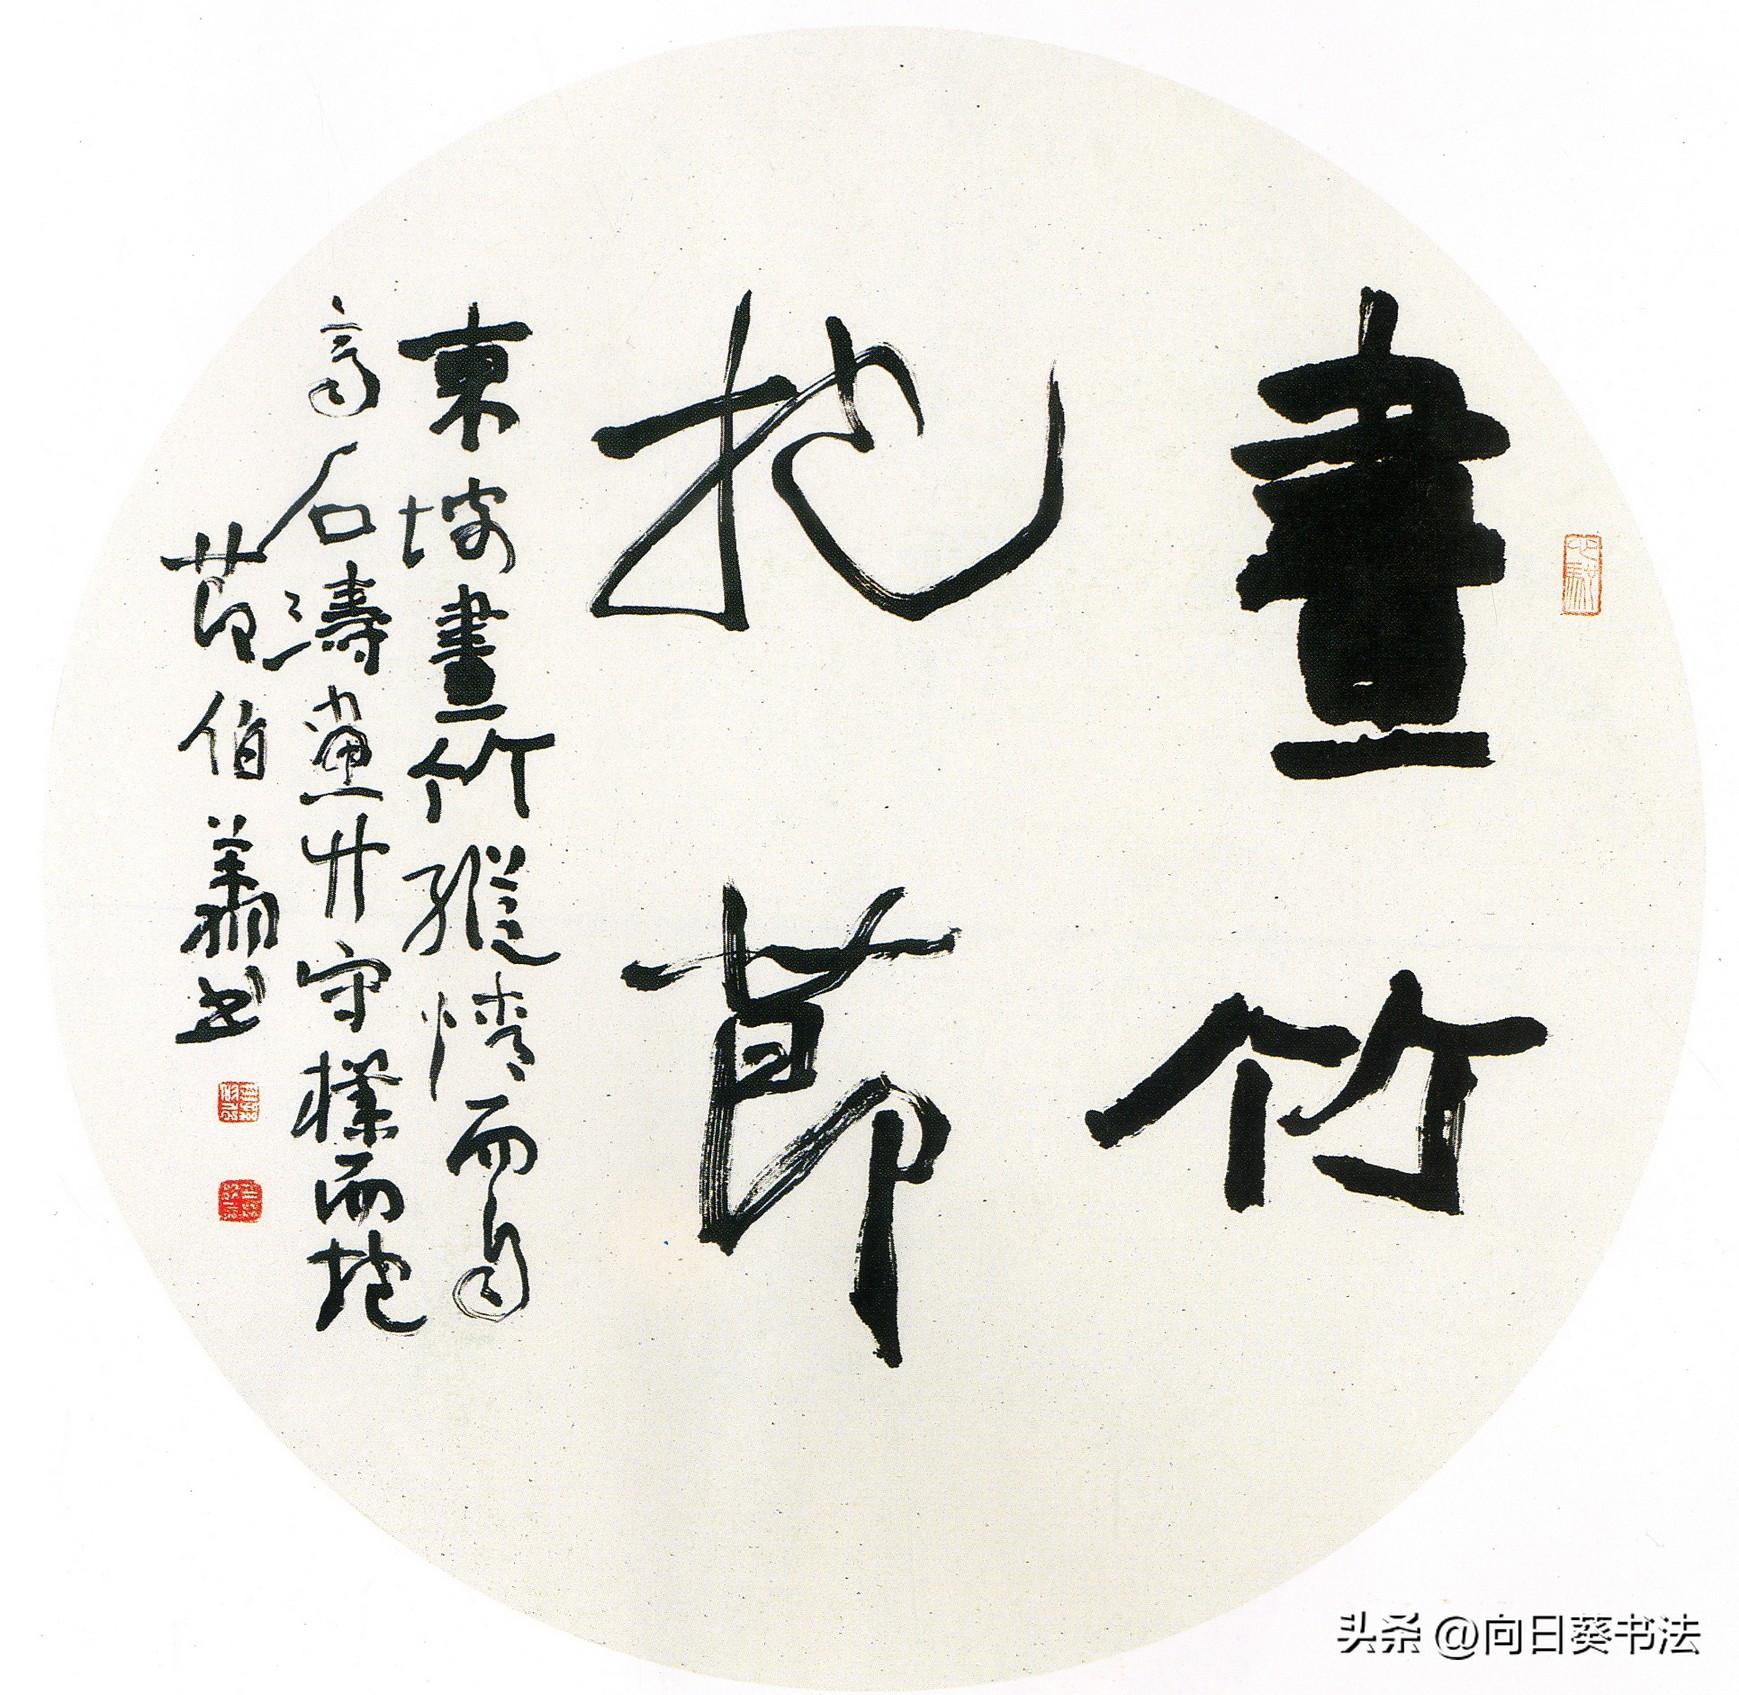 畫竹
抱節
東坡畫竹縱情而自
高石濤畫竹守樸而抱
節伯书
头条 @向日葵书法